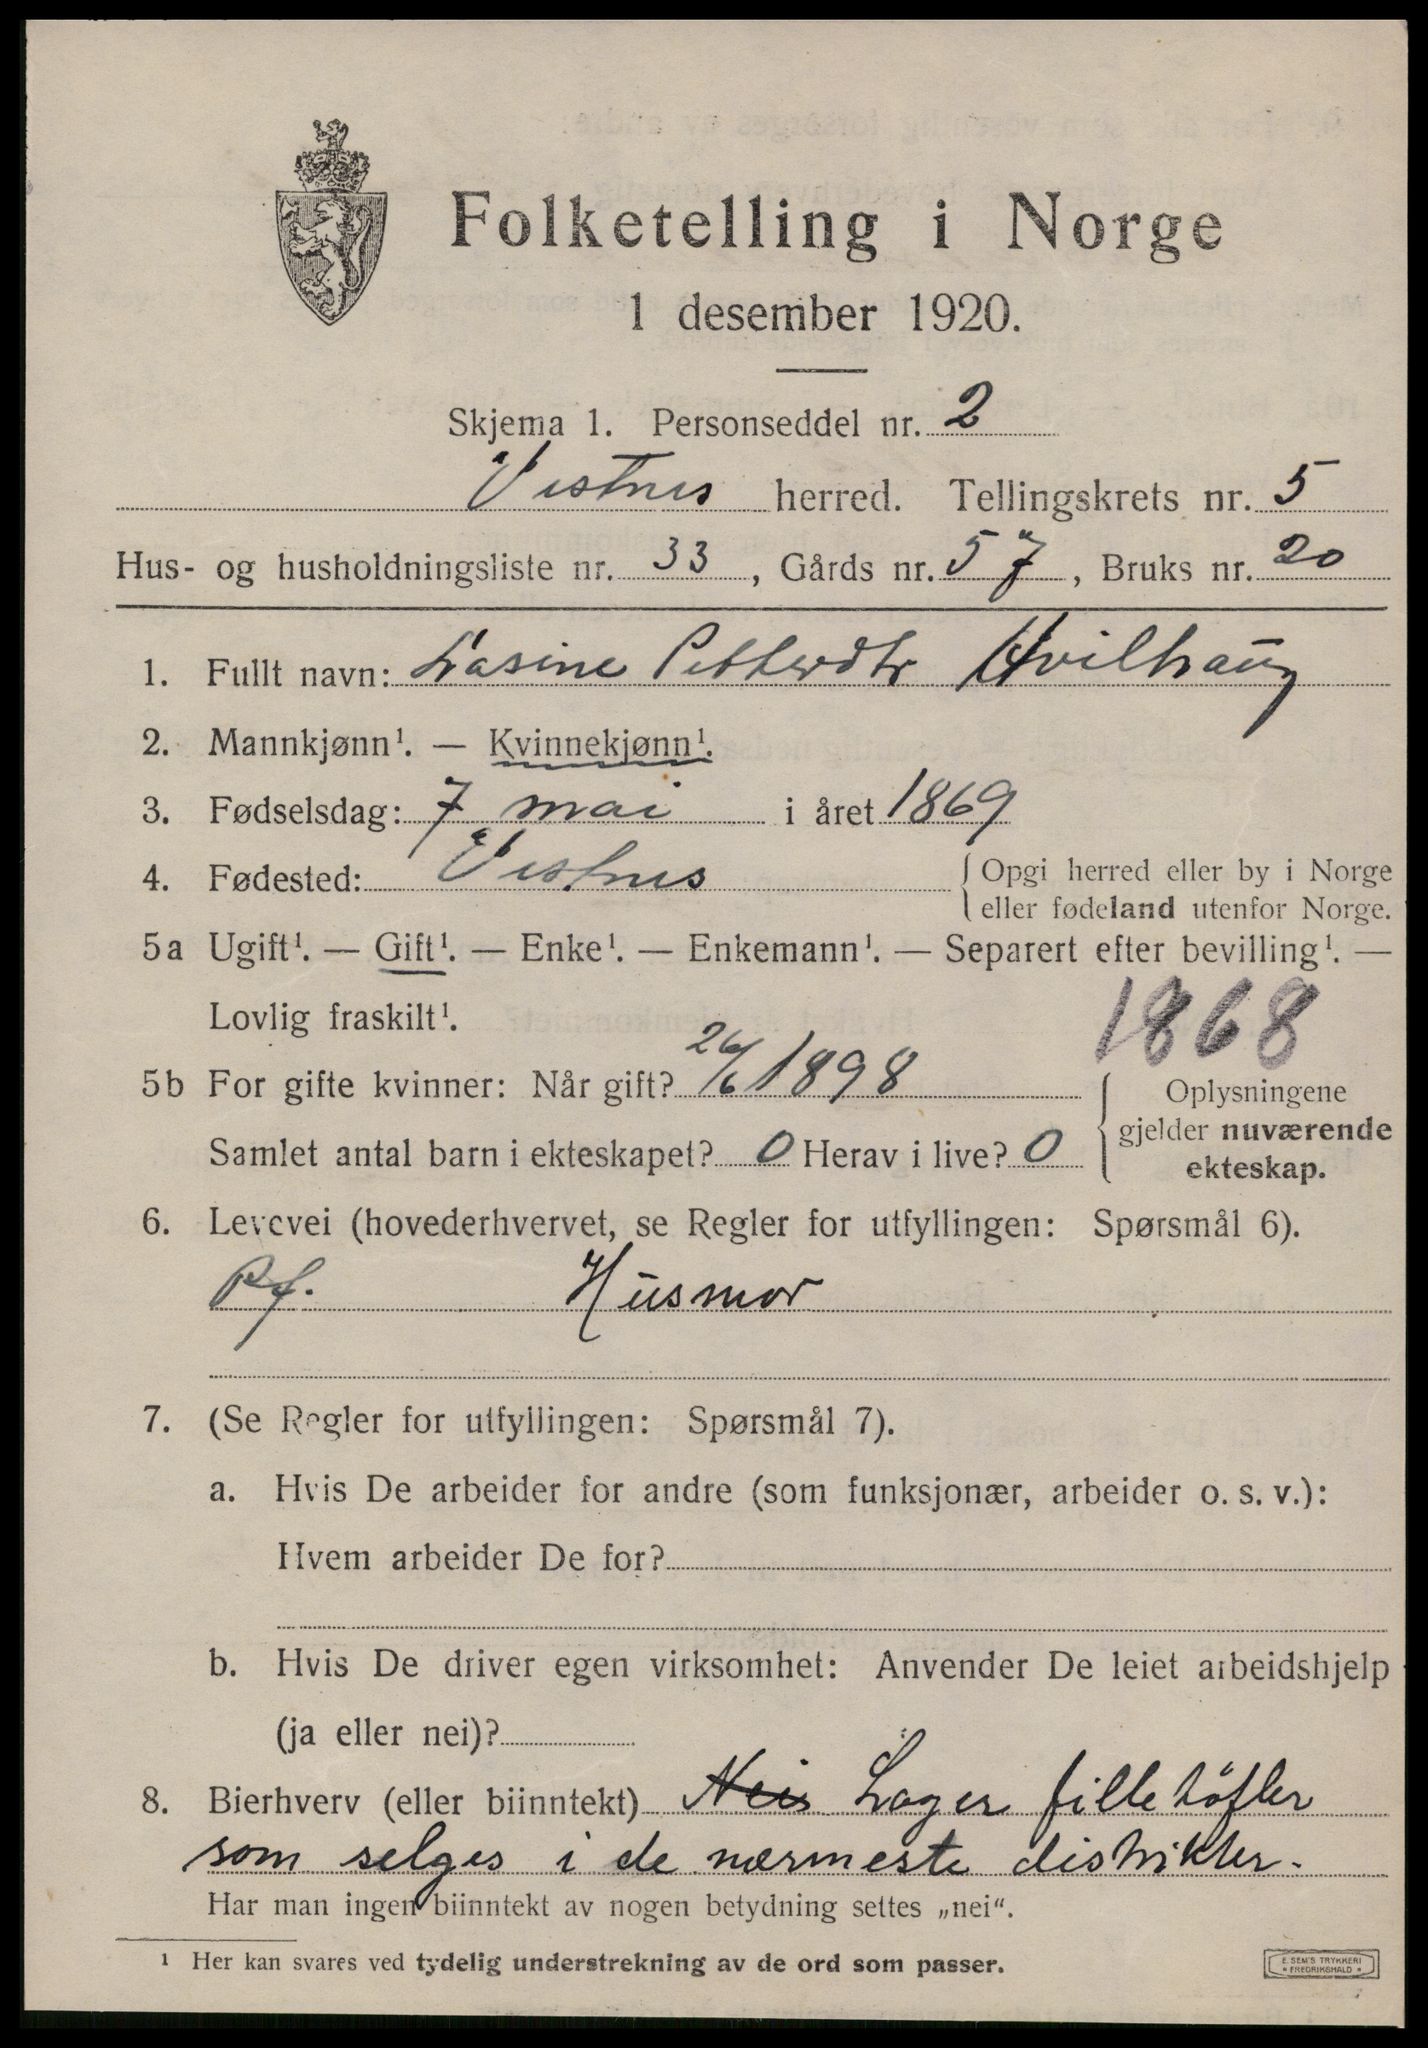 Folketelling i Norge
1 desember 1920.
Skjema 1. Personseddel nr. 2
Vestnes herred. Tellingskrets nr. 5
Hus- og husholdningsliste nr. 33, Gårds nr. 57, Bruks nr. 20
1. Fullt navn: Lasine Petterdtr Hvilhaug
2. Mannkjønn¹. — Kvinnekjønn¹.
3. Fødselsdag: 7 mai i året 1869
4. Fødested: Vestnes { Opgi herred eller by i Norge
eller fødeland utenfor Norge.
5a Ugift¹. — Gift¹. — Enke¹. — Enkemann¹. — Separert efter bevilling¹. —
Lovlig fraskilt¹. 1868
5b For gifte kvinner: Når gift? 26/6 1898 { Oplysningene
gjelder nuværende
Samlet antal barn i ekteskapet? 0 Herav i live? 0 ekteskap.
6. Levevei (hovederhvervet, se Regler for utfyllingen: Spørsmål 6).
Pf. Husmor
7. (Se Regler for utfyllingen: Spørsmål 7).
a. Hvis De arbeider for andre (som funksjonær, arbeider o. s. v.):
Hvem arbeider De for?
b. Hvis De driver egen virksomhet: Anvender De leiet arbeidshjelp
(ja eller nei)?
8. Bierhverv (eller biinntekt) Lager filletöfler
som selges i de nærmeste distrikter.
Har man ingen biinntekt av nogen betydning settes „nei“.
¹ Her kan svares ved tydelig understrekning av de ord som passer.
E. SEM'S TRYKKERI
* FREDRIKSHALD *